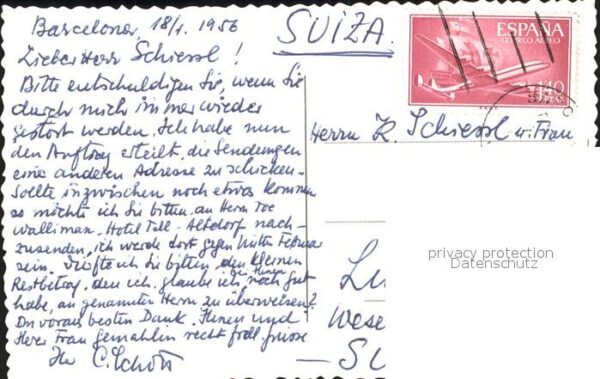 Barcelona, 18/1. 1956
Lieber Herr Schiessl!
Bitte entschuldigen Sie, wenn Sie
durch mich immer wieder
gestört werden. Ich habe nun
den Auftrag erteilt, die Sendungen
eine anderen Adresse zu schicken.
Sollte inzwischen noch etwas kommen
so möchte ich Sie bitten, an Herrn
Wallimann. Hotel Tell - Altdorf nach-
zusenden, ich werde dort gegen Mitte Februar
sein. Dürfte ich Sie bitten, den kleinen
Restbetrag, den ich, glaube ich, bei Ihnen noch gut
habe, an genannten Herrn zu überweisen?
Im voraus besten Dank. Ihnen und
Ihrer Frau Gemahlin recht frdl. Grüsse
Ihr C. Schott
SUIZA.
ESPAÑA
CORREO AEREO
1'40
PTAS
Herrn K. Schiessl u. Frau
privacy protection
Datenschutz
Lu
Wese
— SU